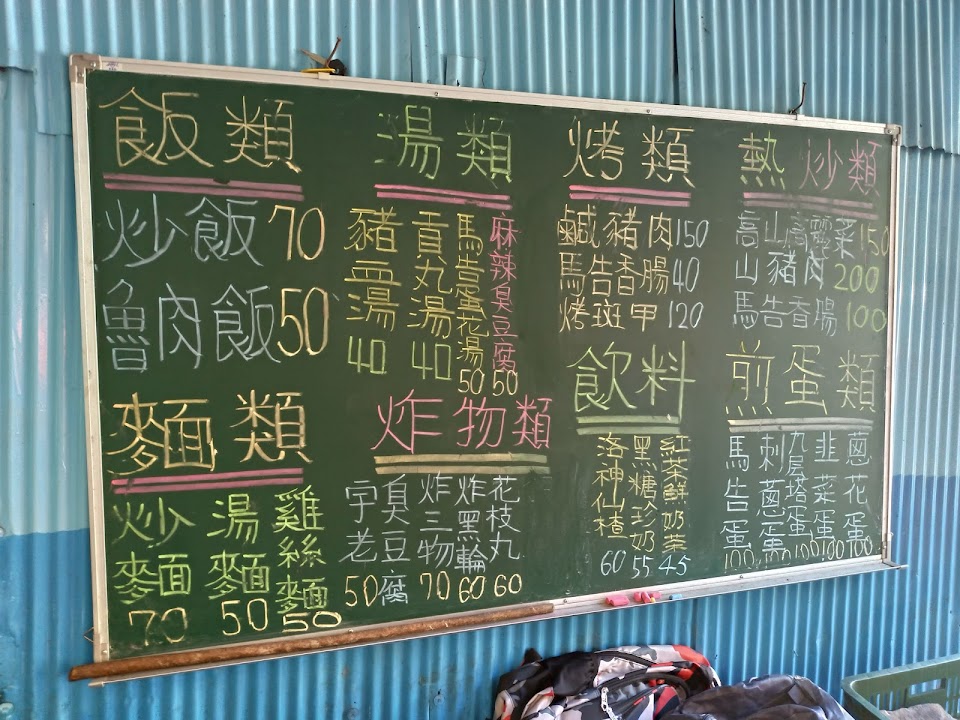 飯類
炒飯70
魯肉飯50
湯類
豬血湯40
貢丸湯40
馬告蛋花湯50
麻辣臭豆腐50
烤類
鹹豬肉150
馬告香腸40
烤斑甲120
熱炒類
高山高麗菜150
山豬肉200
馬告香腸100
麵類
炒麵70
湯麵50
雞絲麵50
炸物類
宇老臭豆腐50
炸三物70
炸黑輪60
花枝丸60
飲料
洛神仙楂60
黑糖珍奶55
紅茶鮮奶茶45
煎蛋類
馬告蛋100
刺蔥蛋100
九层塔蛋100
韭菜蛋100
蔥花蛋100